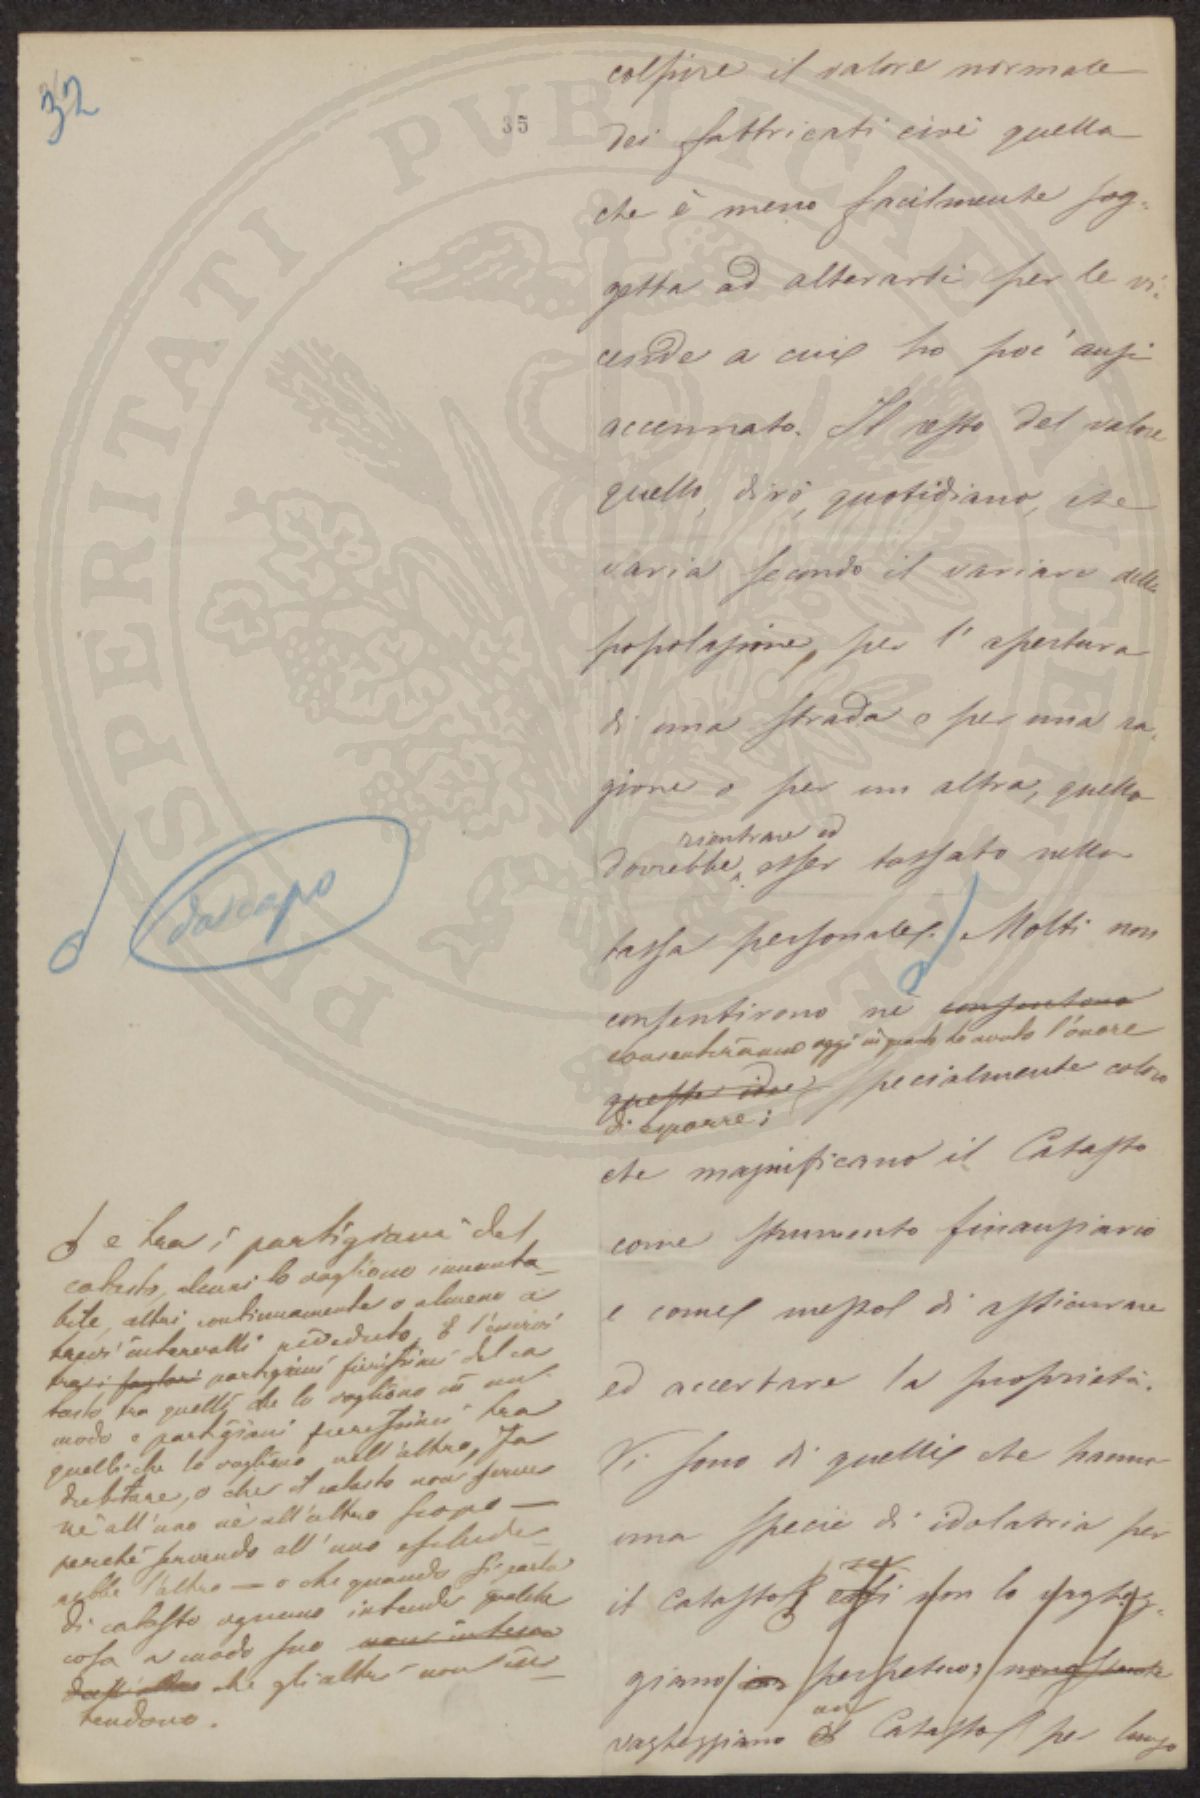 32
35
colpire il valore normale
dei fabbricati cioè quella
che è meno facilmente sog-
getta ad alterarsi per le vi-
cende a cui ho poc'anzi
accennato. Il resto del valore
quello, dirò, quotidiano, che
varia secondo il variare della
popolazione, per l'apertura
di una strada o per una ra-
gione o per un altra, quello
rientrare ed
dovrebbe esser tassato nella
tassa personale. Molti non
consentirono nè consentono
consentiranno oggi in quanto ho avuto l'onore
queste idee specialmente coloro
di esporre;
che magnificano il Catasto
come strumento finanziario
e come mezzo di assicurare
ed accertare la proprietà.
Vi sono di quelli che hanno
una specie di idolatria per
il Catasto; essi non lo vagheg-
giano perpetuo;
vagheggiano un il Catasto per lungo
da capo
e tra i partigiani del
catasto, alcuni lo vogliono immuta-
bile, altri continuamente o almeno a
brevi intervalli riveduto, E l'
tra i partigiani fierissimi del ca
tasto tra quelli che lo vogliono in un
modo e partigiani fierissimi tra
quelli che lo vogliono nell'altro, fa
dubitare, o che il catasto non serve
nè all'uno nè all'altro scopo —
perchè servendo all'uno esclude-
rebbe l'altro — o che quando si parla
di catasto ognuno intende qualche
cosa a modo suo
che gli altri non in-
tendono.
PROSPERITATI PVBLICAE AVGENDAE